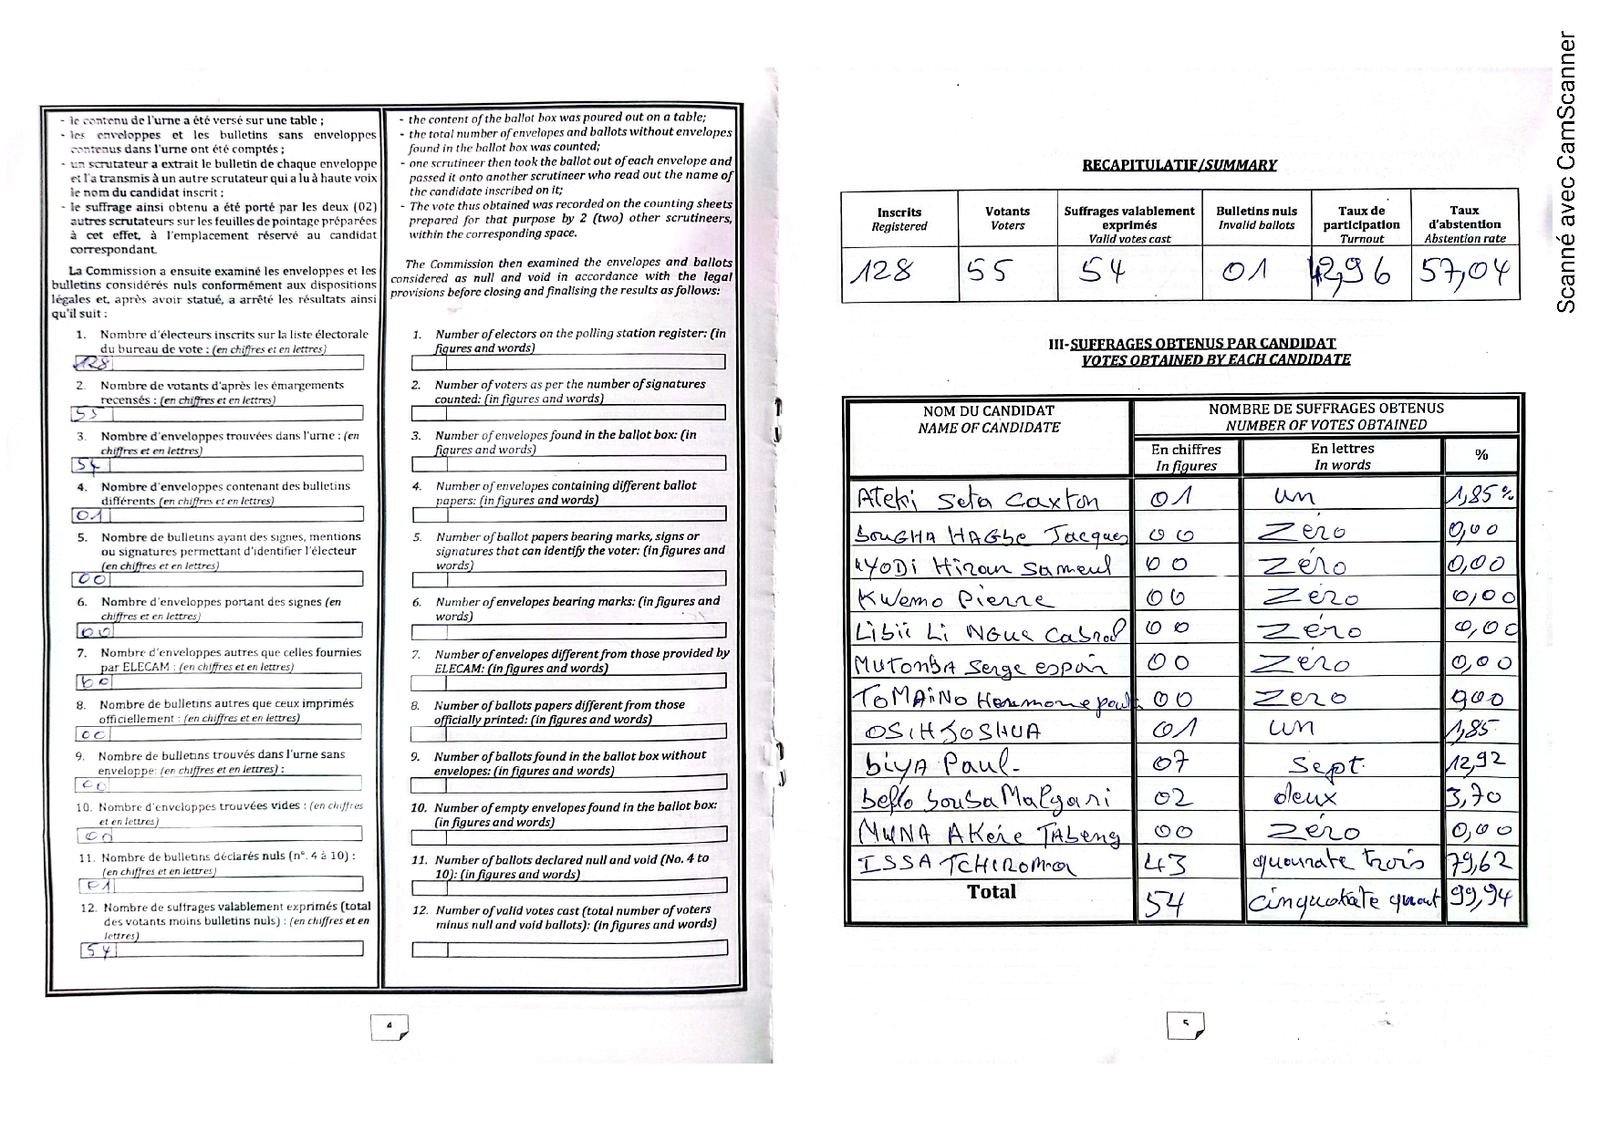 - le contenu de l'urne a été versé sur une table ;
- les enveloppes et les bulletins sans enveloppes
contenus dans l'urne ont été comptés ;
- un scrutateur a extrait le bulletin de chaque enveloppe
et l'a transmis à un autre scrutateur qui a lu à haute voix
le nom du candidat inscrit ;
- le suffrage ainsi obtenu a été porté par les deux (02)
autres scrutateurs sur les feuilles de pointage préparées
à cet effet, à l'emplacement réservé au candidat
correspondant.
La Commission a ensuite examiné les enveloppes et les
bulletins considérés nuls conformément aux dispositions
légales et, après avoir statué, a arrêté les résultats ainsi
qu'il suit :
1. Nombre d'électeurs inscrits sur la liste électorale
du bureau de vote : (en chiffres et en lettres)
128
2. Nombre de votants d'après les émargements
recensés : (en chiffres et en lettres)
55
3. Nombre d'enveloppes trouvées dans l'urne : (en
chiffres et en lettres)
54
4. Nombre d'enveloppes contenant des bulletins
différents (en chiffres et en lettres)
01
5. Nombre de bulletins ayant des signes, mentions
ou signatures permettant d'identifier l'électeur
(en chiffres et en lettres)
00
6. Nombre d'enveloppes portant des signes (en
chiffres et en lettres)
00
7. Nombre d'enveloppes autres que celles fournies
par ELECAM : (en chiffres et en lettres)
00
8. Nombre de bulletins autres que ceux imprimés
officiellement : (en chiffres et en lettres)
00
9. Nombre de bulletins trouvés dans l'urne sans
enveloppe: (en chiffres et en lettres) :
00
10. Nombre d'enveloppes trouvées vides : (en chiffres
et en lettres)
00
11. Nombre de bulletins déclarés nuls (n°. 4 à 10) :
(en chiffres et en lettres)
01
12. Nombre de suffrages valablement exprimés (total
des votants moins bulletins nuls) : (en chiffres et en
lettres)
54
- the content of the ballot box was poured out on a table;
- the total number of envelopes and ballots without envelopes
found in the ballot box was counted;
- one scrutineer then took the ballot out of each envelope and
passed it onto another scrutineer who read out the name of
the candidate inscribed on it;
- The vote thus obtained was recorded on the counting sheets
prepared for that purpose by 2 (two) other scrutineers,
within the corresponding space.
The Commission then examined the envelopes and ballots
considered as null and void in accordance with the legal
provisions before closing and finalising the results as follows:
1. Number of electors on the polling station register: (in
figures and words)
2. Number of voters as per the number of signatures
counted: (in figures and words)
3. Number of envelopes found in the ballot box: (in
figures and words)
4. Number of envelopes containing different ballot
papers: (in figures and words)
5. Number of ballot papers bearing marks, signs or
signatures that can identify the voter: (in figures and
words)
6. Number of envelopes bearing marks: (in figures and
words)
7. Number of envelopes different from those provided by
ELECAM: (in figures and words)
8. Number of ballots papers different from those
officially printed: (in figures and words)
9. Number of ballots found in the ballot box without
envelopes: (in figures and words)
10. Number of empty envelopes found in the ballot box:
(in figures and words)
11. Number of ballots declared null and void (No. 4 to
10): (in figures and words)
12. Number of valid votes cast (total number of voters
minus null and void ballots): (in figures and words)
4
RECAPITULATIF/SUMMARY
Inscrits Votants Suffrages valablement Bulletins nuls Taux de Taux
Registered Voters exprimés Invalid ballots participation d'abstention
Valid votes cast Turnout Abstention rate
128 55 54 01 42,96 57,04
III-SUFFRAGES OBTENUS PAR CANDIDAT
VOTES OBTAINED BY EACH CANDIDATE
NOM DU CANDIDAT NOMBRE DE SUFFRAGES OBTENUS
NAME OF CANDIDATE NUMBER OF VOTES OBTAINED
En chiffres En lettres %
In figures In words
Ateki Seta Caxton 01 un 1,85%
bouGHA HAGbe Jacques 00 Zéro 0,00
Hiram Sameul 00 Zéro 0,00
Kwemo Pierre 00 Zéro 0,00
Libii Li NGue Cabral 00 Zéro 0,00
MUTOMBA Serge espoir 00 Zéro 0,00
TOMAÏNO 00 Zero 0,00
OSIH JOSHUA 01 un 1,85
biYA Paul. 07 Sept. 12,92
bello bouba Maïgari 02 deux 3,70
MUNA AKere TAbeng 00 Zéro 0,00
ISSA TCHIROMA 43 quarate trois 79,62
Total 54 cinquatate quat 99,94
5
Scanné avec CamScanner